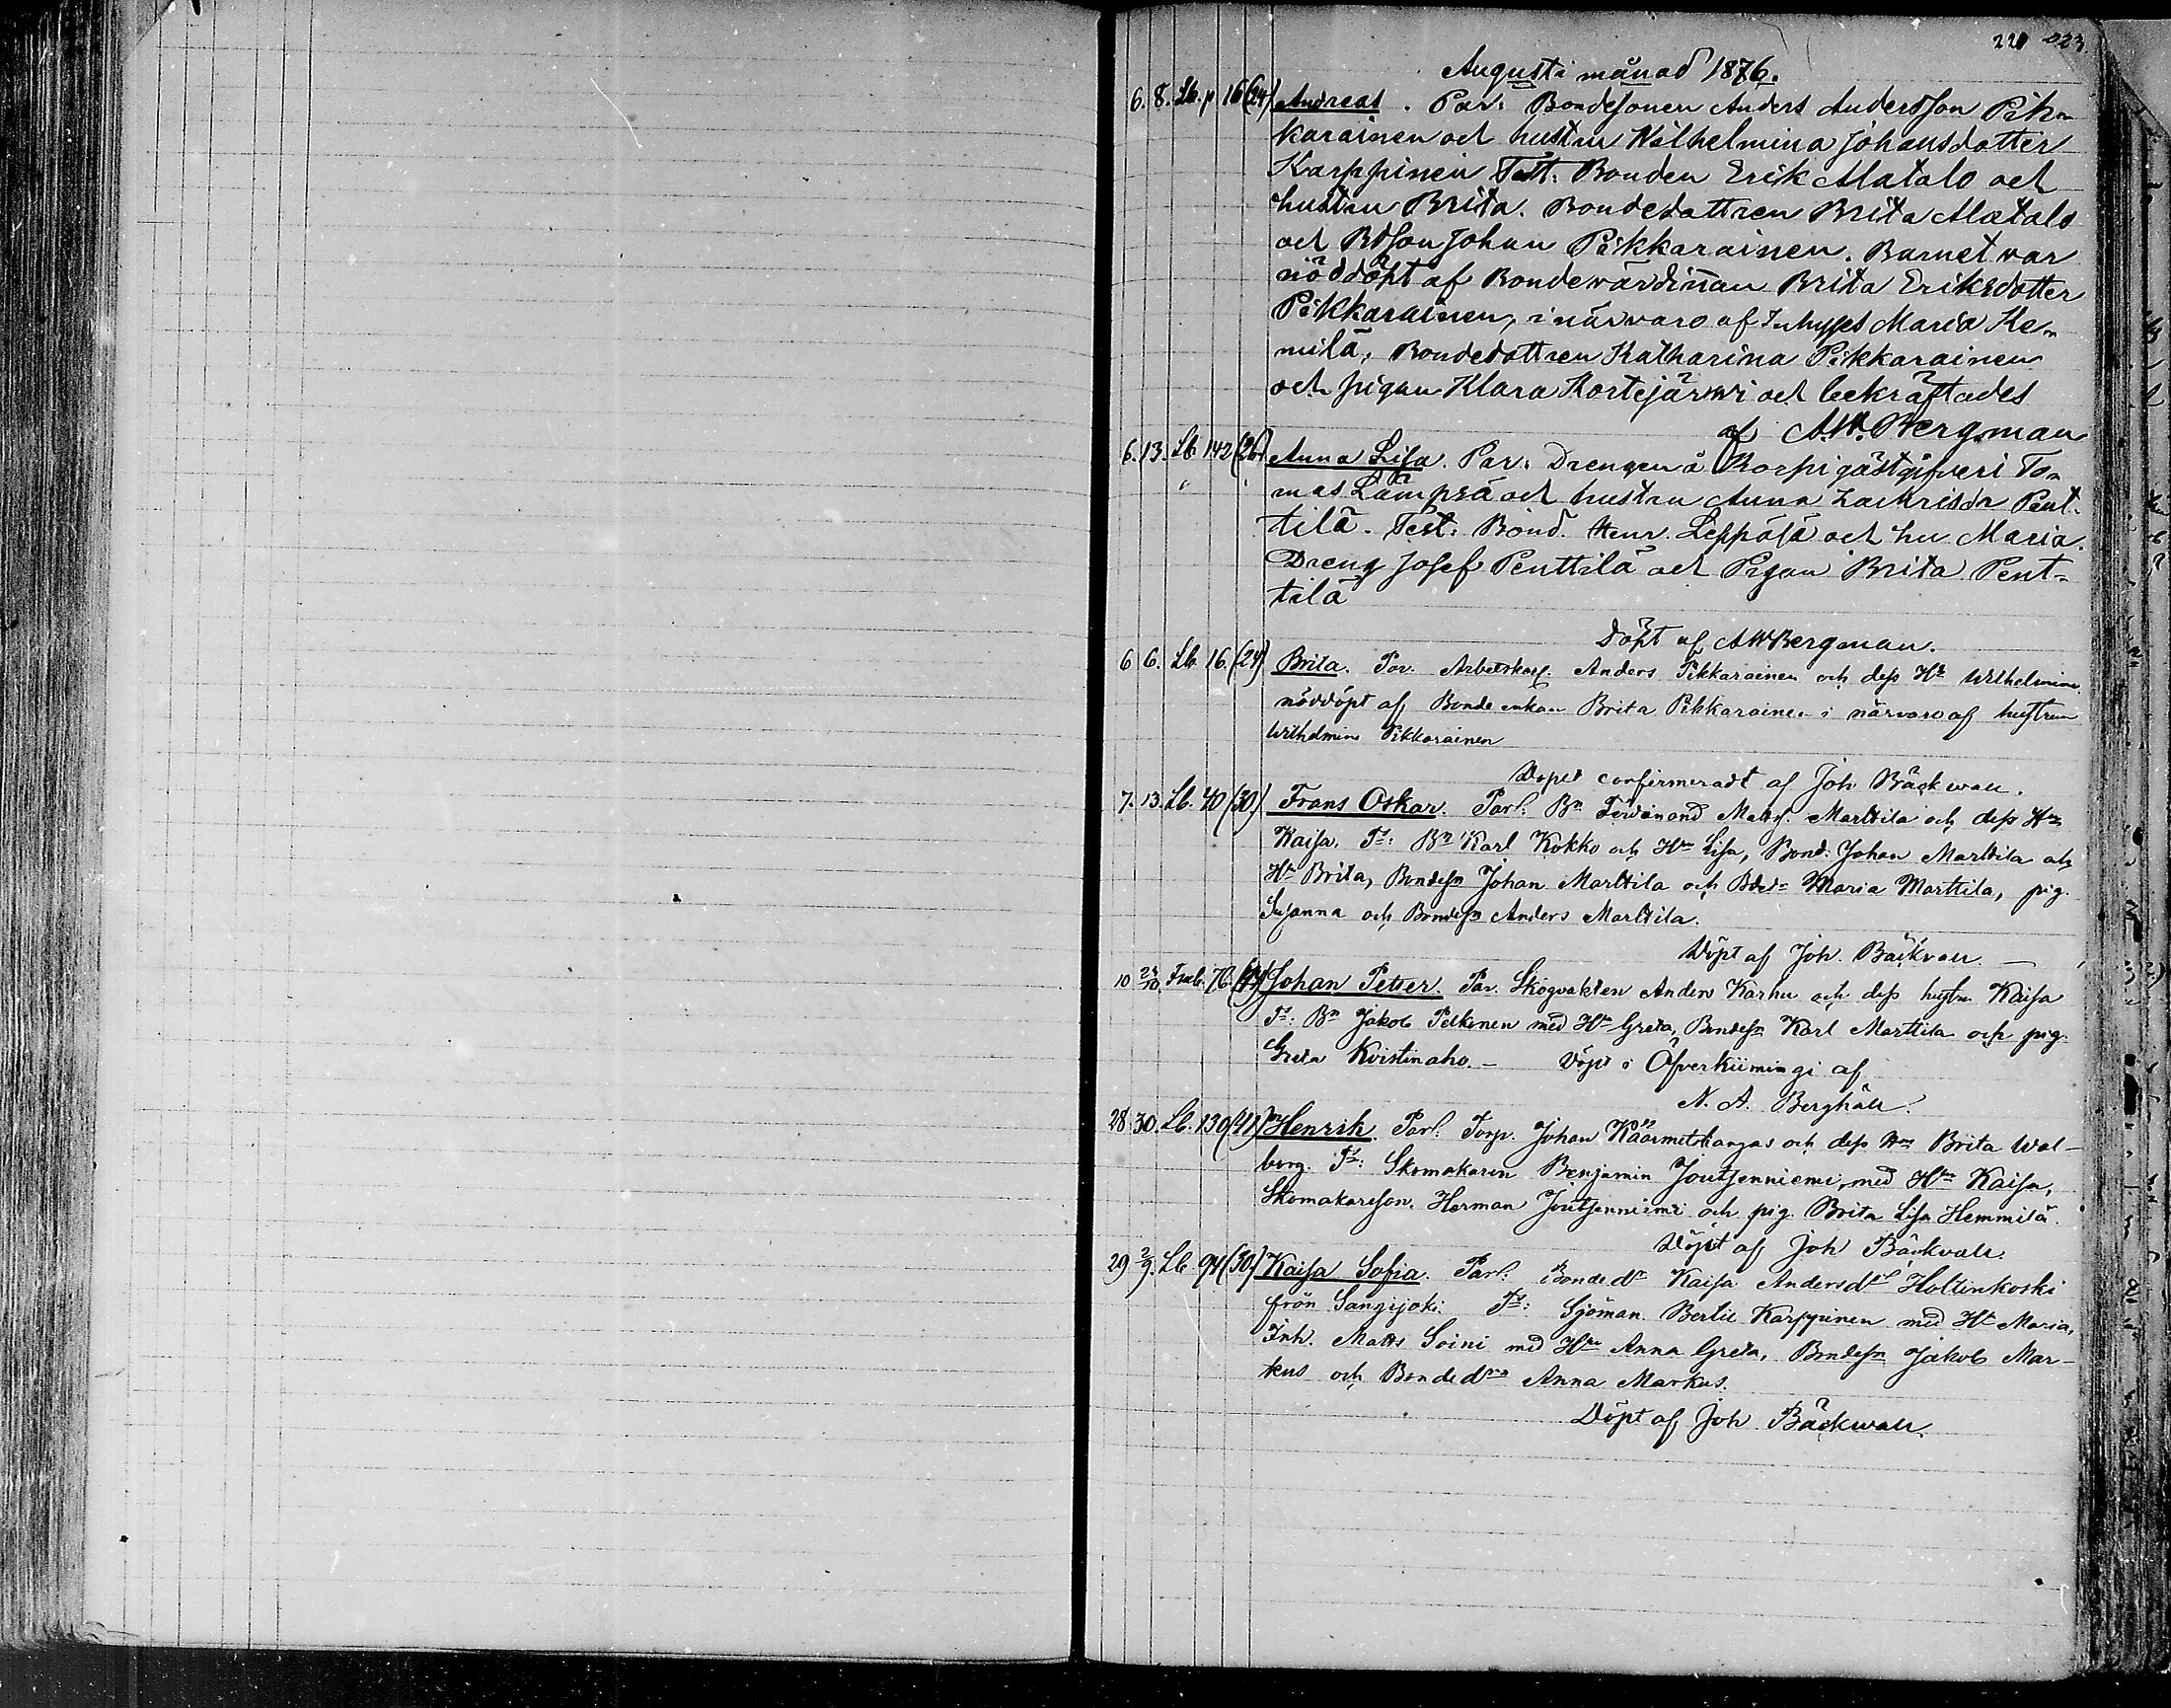 220 223.
Augusti månad 1876.
6. 8. Lb. p 16 (24) Andreas. Par: Bondesonen Anders Andersson Pik-
karainen och hustru Wilhelmina Johansdotter
Karppinen Test: Bonden Erik Alatalo och
hustru Brita. Bondedottren Brita Alatalo
och Bdson Johan Pikkarainen. Barnet var
nöddöpt af Bondevärdinnan Brita Eriksdotter
Pikkarainen, i närvaro af Inhyses Maria Ke-
milä, Bondedottren Katharina Pikkarainen
och pigan Klara Kortejärwi och bekräftades
af A.W. Bergman
6. 13. Lb. 142 (26) Anna Lisa. Par: Drengen å Korpi gästgifveri To-
mas Lämpsä och hustru Anna Zachrisdr Pent-
tilä. Test: Bond. Henr. Leppälä och hu Maria.
Dreng Josef Penttilä och Pigan Brita Pent-
tilä
Döpt af AWBergman.
6 6. Lb. 16. (24) Brita. Par. Arbetskarl. Anders Pikkarainen och dess Hu Wilhelmina
nöddöpt af Bonde enkan Brita Pikkarainen i närvaro af hustrun
Wilhelmina Pikkarainen
Dopet confirmeradt af Joh Bäckwall.
7. 13. Lb. 40 (30) Frans Oskar. Par: Bn Ferdinand Matts. Marttila och dess Hu
Kaisa. Ts: Bn Karl Kokko och Hu Lisa, Bond: Johan Marttila och
Hu Brita, Bondesn Johan Marttila och Bdedr Maria Marttila, pig.
Susanna och Bondesn Anders Marttila.
Döpt af Joh. Bäckvall. —
10 24/10. 76. Johan Petter. Par. Skogvakten Anders Karhu och dess hustru Kaisa
Ts: Bn Jakob Pelkonen med Hu Greta, Bondesn Karl Marttila och pig.
Greta Kvistinaho. — Döpt i Öfverkiimingi af
N. A. Berghäll.
28 30. Lb. 130 (41) Henrik. Par: Torp. Johan Käärmetkangas och dess Hu Brita Wal-
borg. Ts: Skomakaren Benjamin Joutsenniemi med Hu Kaisa,
Skomakareson. Herman Joutsenniemi och pig. Brita Lisa Hemmilä.
Döpt af Joh Bäckvall.
29 2/9. Lb. 94 (30) Kaisa Sofia. Par: Bondedr Kaisa Andersdr Holtinkoski
från Sangijoki. Ts: Sjöman Bertil Karppinen med Hu Maria,
Inh. Matts Soini med Hu Anna Greta, Bondesn Jakob Mar-
kus och Bondedn Anna Markus.
Döpt af Joh Bäckwall.